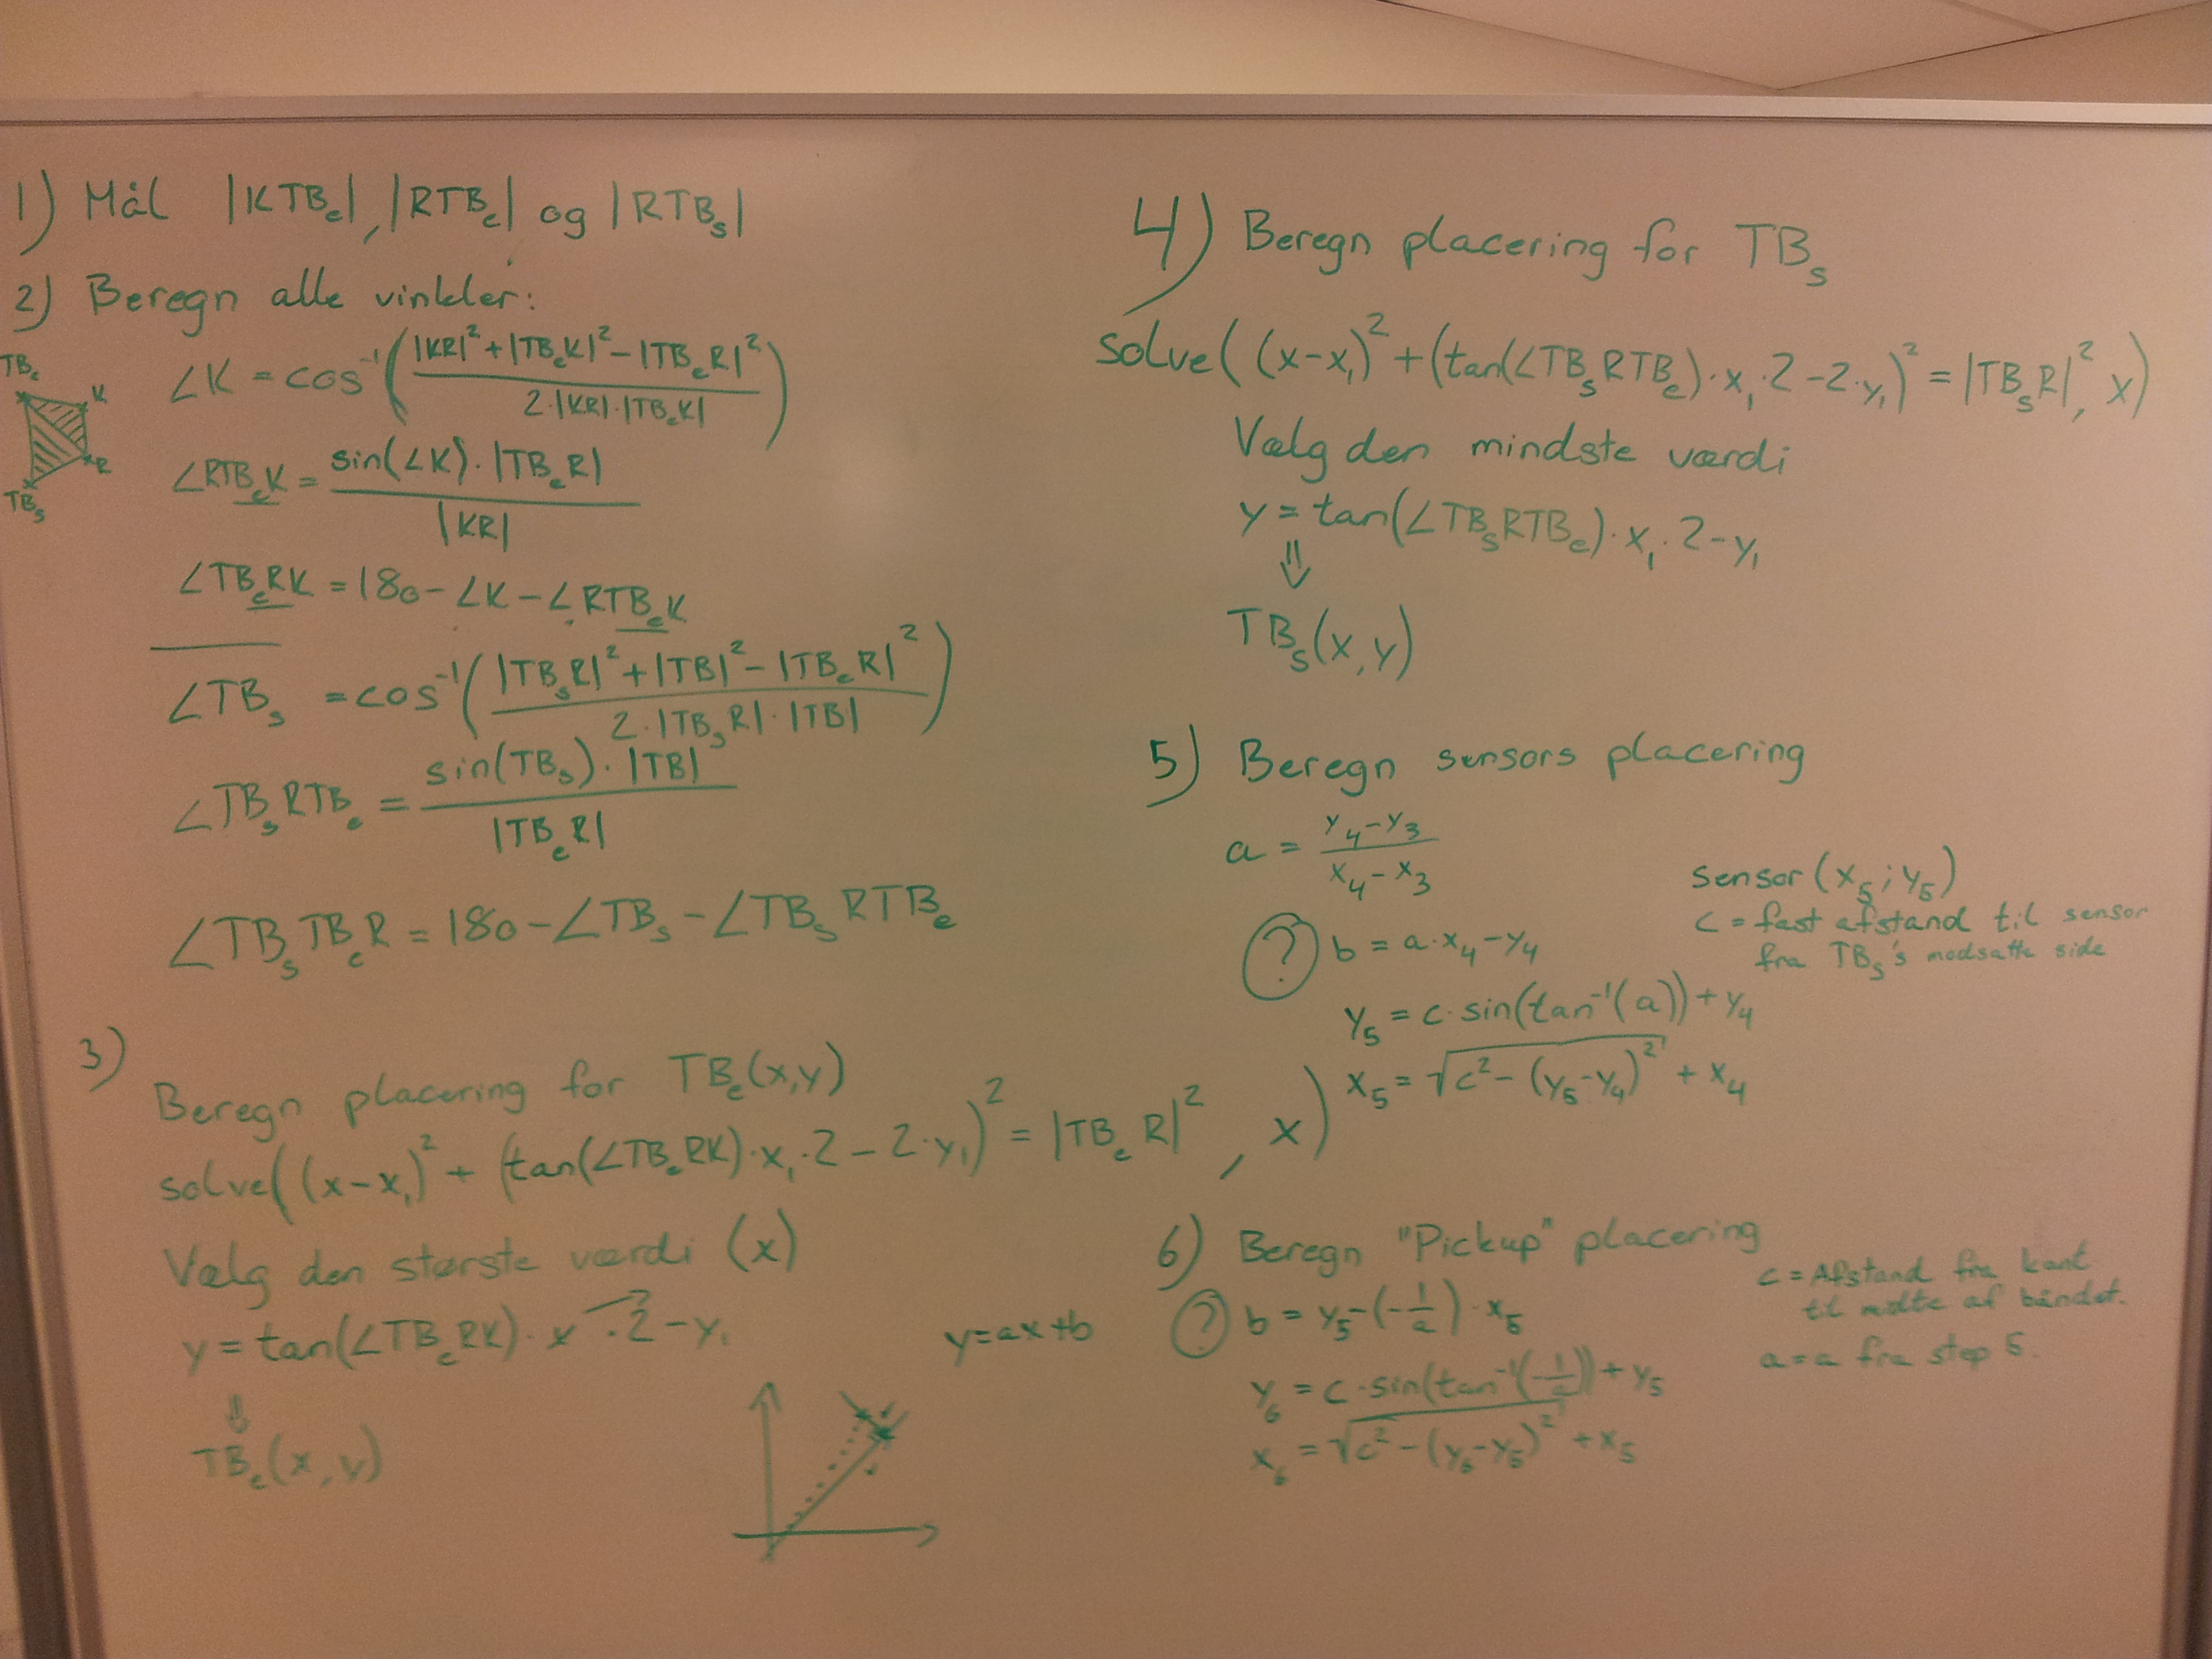 1) Mål |KTBe|, |RTBe| og |RTBs|
2) Beregn alle vinkler:
TBe
K
R
TBs
∠K = cos⁻¹((|KR|² + |TBeK|² - |TBeR|²) / (2·|KR|·|TBeK|))
∠RTBeK = (sin(∠K)·|TBeR|) / |KR|
∠TBeRK = 180 - ∠K - ∠RTBeK
∠TBs = cos⁻¹((|TBsR|² + |TB|² - |TBeR|²) / (2·|TBsR|·|TB|))
∠TBsRTBe = (sin(TBs)·|TB|) / |TBeR|
∠TBsTBeR = 180 - ∠TBs - ∠TBsRTBe
3)
Beregn placering for TBe(x,y)
solve((x-x₁)² + (tan(∠TBeRK)·x₁·2 - 2·y₁)² = |TBeR|², x)
Vælg den største værdi (x)
y = tan(∠TBeRK)·x·2 - y₁
⇓
TBe(x,y)
y=ax+b
4) Beregn placering for TBs
solve((x-x₁)² + (tan(∠TBsRTBe)·x₁·2 - 2·y₁)² = |TBsR|², x)
Vælg den mindste værdi
y = tan(∠TBsRTBe)·x₁·2 - y₁
⇓
TBs(x,y)
5) Beregn sensors placering
a = (y₄-y₃) / (x₄-x₃)
sensor(x₅;y₅)
c = fast afstand til sensor
fra TBs's modsatte side
? b = a·x₄ - y₄
y₅ = c·sin(tan⁻¹(a)) + y₄
x₅ = √(c² - (y₅-y₄)²) + x₄
6) Beregn "Pickup" placering
c = Afstand fra kant
til midte af båndet.
a = a fra step 5.
? b = y₅ - (-1/a)·x₅
y₆ = c·sin(tan⁻¹(-1/a)) + y₅
x₆ = √(c² - (y₆-y₅)²) + x₅